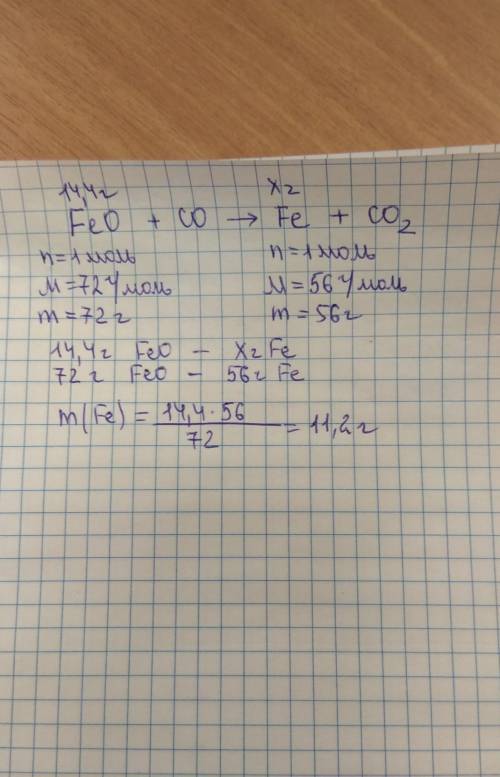 14,4г Xг
FeO + CO → Fe + CO₂
n=1моль n=1моль
M=72г/моль M=56г/моль
m=72г m=56г
14,4г FeO – Xг Fe
72г FeO – 56г Fe
m(Fe) = 14,4·56 / 72 = 11,2г